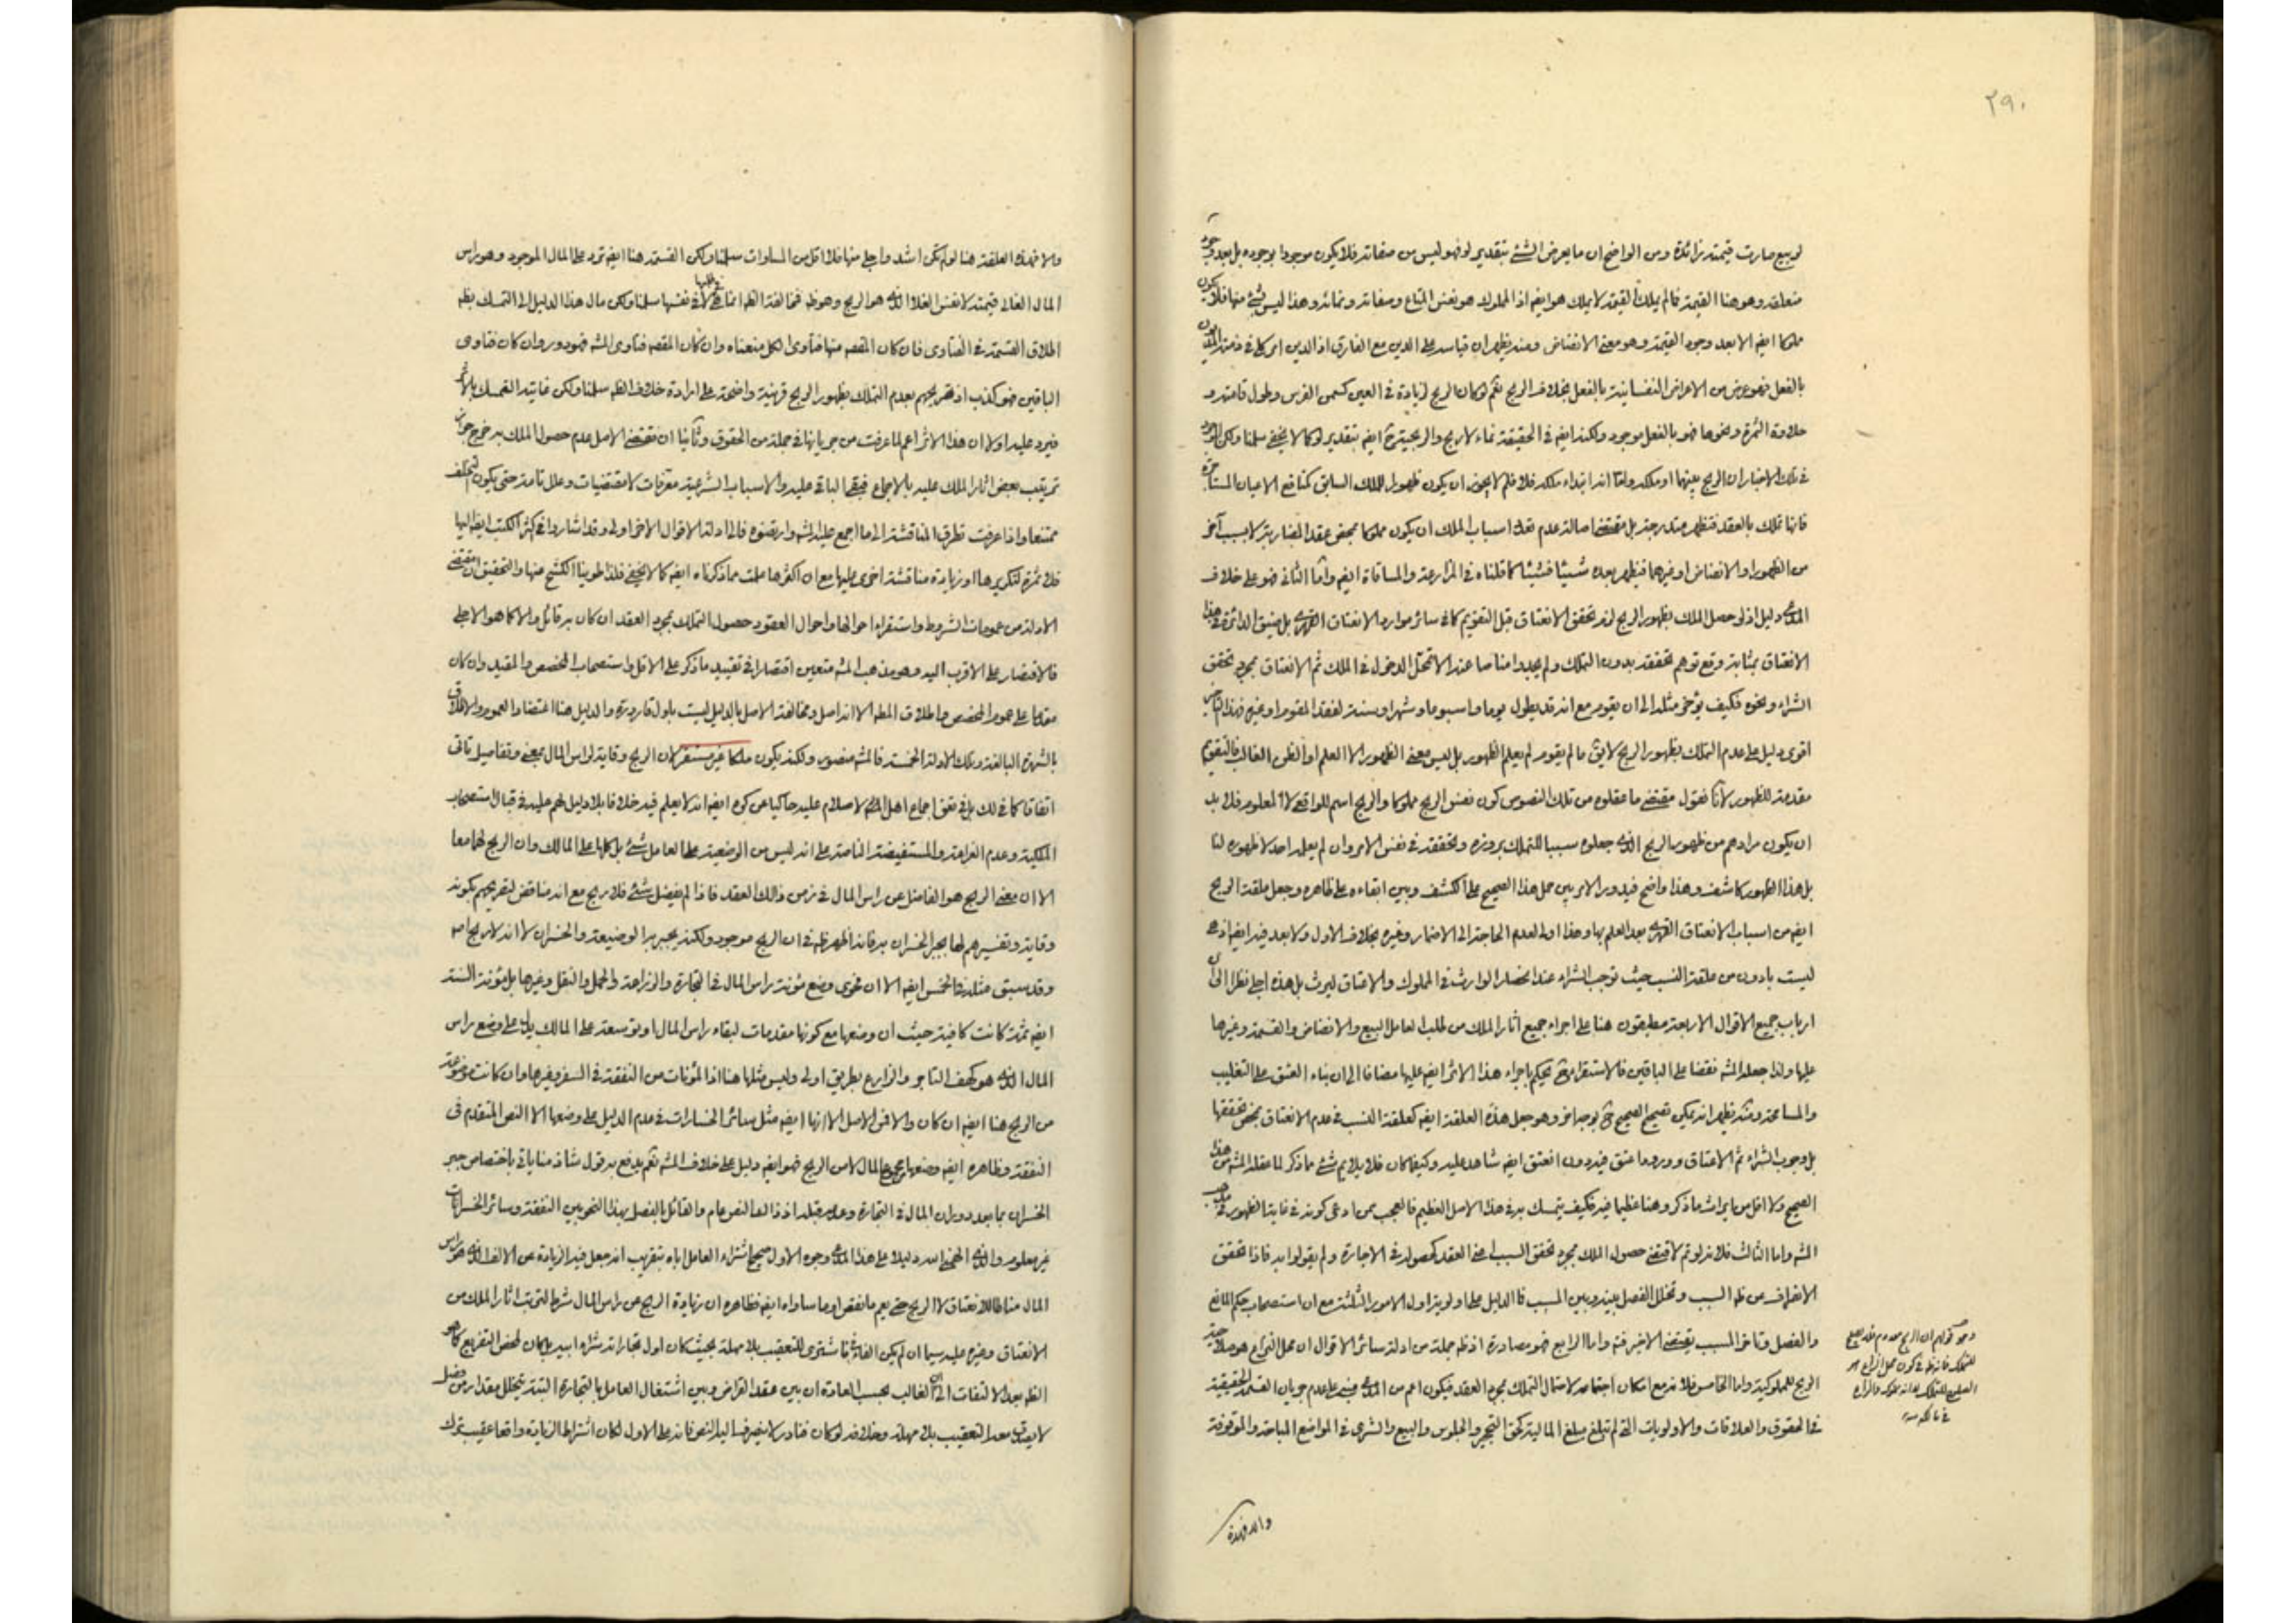 ٢٩٠
لو بيع صارت قيمته زائدة ومن الواضح ان ما يعرض الشئ بتقدير لو فهو ليس من صفاته فلا يكون موجودا بوجوده بل بعد وجود
متعلقه وهو هنا القيمة فما لم يملك القيمة لا يملك هو ايضا اذ المملوك هو نفس المتاع وصفاته ونمائه وهذا ليس بشئ منها فلا يكون
ملكا ايضا الا بعد وجود القيمة وهو معنى الانضاض ومنه يظهر ان قياسه على الدين مع الفارق اذ الدين امر كلى فى ذمة المديون
بالفعل فهو عرض من الاعراض النفسانية بالفعل بخلاف الربح نعم لو كان الربح لزيادة فى العين كسمن الفرس وطول قامته و
حلاوة الثمرة ونحوها فهو بالفعل موجود ولكنه ايضا فى الحقيقة نماء لا ربح والربحية ايضا بتقدير لو كما لا يخفى سلمنا ولكن الموجود
فى تلك الاخبار ان الربح بينهما او ملكه واما انه ابتداء ملكه فلا فلم لا يجوز ان يكون ظهورا للملك السابق كمنافع الاعيان المستأجرة
فانها تملك بالعقد فتظهر متدرجة بل مقتضى اصالة عدم تعدد اسباب الملك ان يكون مملوكا بمحض عقد المضاربة لا بسبب آخر
من الظهور او الانضاض او غيرهما فيظهر بعده شيئا فشيئا كما قلناه فى المزارعة والمساقاة ايضا واما الثانى فهو على خلاف
المدعى دليل اذ لو حصل الملك بظهور الربح لزم تحقق الانعتاق قبل التقويم كما فى سائر موارد الانعتاق القهرى بل ضيق الدائرة فى هذا
الانعتاق بمثابة وقع توهم تحققه بدون التملك ولم يجدوا مناصا عنه الا تمحل الدخول فى الملك ثم الانعتاق بمجرد تحقق
الشراء ونحوه فكيف يؤخر مثله الى ان يقوم مع انه قد يطول يوما واسبوعا وشهرا وسنة لفقد المقوم او غيره فهذا التأخير
اقوى دليل على عدم التملك بظهور الربح لا يق ما لم يقوم لم يعلم الظهور بل ليس معنى الظهور الا العلم او الظن الغالب فالتقويم
مقدمة للظهور لانا نقول مقتضى ما عقلوه من تلك النصوص كون نفس الربح مملوكا والربح اسم للواقعى لا المعلوم فلا بد
ان يكون مرادهم من ظهور الربح الذى جعلوه سببا للتملك بروزه وتحققه فى نفس الامر وان لم يعلمه احد لا ظهوره لنا
بل هذا الظهور كاشف وهذا واضح فيدور الامر بين حمل هذا الصحيح على الكشف وبين ابقاءه على ظاهره وجعل علقة الربح
ايضا من اسباب الانعتاق القهرى بعد العلم بها وهذا اولى لعدم الحاجة الى الاضمار وغيره بخلاف الاول ولا بعد فيه ايضا اذ هى
ليست بادون من علقة النسب حيث توجب الشراء عند انحصار الوارث فى المملوك والاعتاق ليرث بل هذه اجلى نظرا الى ان
ارباب جميع الاقوال الاربعة مطبقون هنا على اجراء جميع آثار الملك من طلب العامل البيع والانضاض والقسمة وغيرها
عليها ولذا جعله المشه نقضا على الباقين فالاستقراء ح يحكم باجراء هذا الاثر ايضا عليها مضافا الى ان بناء العتق على التغليب
والمسامحة ومنه يظهر انه يمكن تصحيح الصحيح ح بوجه اخر وهو جعل هذه العلقة ايضا كعلقة النسب فى عدم الانعتاق بمحض تحققها
بل وجوب الشراء ثم الاعتاق وورود اعتق فيه دون انعتق ايضا شاهد عليه وكيفما كان فلا يلايم شئ مما ذكر لما عقله المشه من هذا
الصحيح ولا اقل من ايراث ما ذكر وهنا عظيما فيه فكيف يتمسك به فى هذا الاصل العظيم فالعجب ممن ادعى كونه فى غاية الظهور فى مذهب
المشه واما الثالث فلانه لو تم لاقتضى حصول الملك بمجرد تحقق السبب اعنى العقد كحصوله فى الاجارة ولم يقولوا به فاذا تحقق
الانصراف عن ظه السبب وتخلل الفصل بينه وبين المسبب فما الدليل على اولويته اول الامور الثلثة مع ان استصحاب حكم المانع
والفصل وتاخر المسبب يقتضى الاخير فته واما الرابع فهو مصادرة اذ ظه جملة من ادلة سائر الاقوال ان محل النزاع هو صلاحية
الربح للمملوكية واما الخامس فلانه مع امكان اجتماعه لاحتمال التملك بمجرد العقد فيكون اعم من المدعى مبنى على عدم جريان القسمة الحقيقية
فى الحقوق والعلاقات والاولويات التى لم تبلغ مبلغ المالية كحق التحجير والجلوس والبيع والشرى فى المواضع المباحة والموقوفة
والاخذة
والاخذة العلقة هنا لو لم تكن اشد واجلى منها فلا اقل من المساوات سلمنا ولكن القسمة هنا ايضا ترد على المال الموجود وهو راس
المال الغالى قيمته لا نفس الغلاء الذى هو الربح وهو ظه فمخالفة الظه انما هى فى طلبها لا فى نفسها سلمنا ولكن مآل هذا الدليل الى التمسك بظه
اطلاق القسمة فى الفتاوى فان كان المقصد منها فتاوى الكل منعناه وان كان المقصد فتاوى المشه فهو دور وان كان فتاوى
الباقين فهو كذب اذ تصريحهم بعدم التملك بظهور الربح قرينة واضحة على ارادة خلاف الظه سلمنا ولكن غايته التمسك بالاثر
فيرد عليه اولا ان هذا الاثر اعم لما عرفت من جريانها فى جملة من الحقوق وثانيا ان مقتضى الاصل عدم حصول الملك به خرج جواز
ترتيب بعض اثار الملك عليه بالاجماع فيبقى الباقى عليه والاسباب الشرعية معرفات لا مقتضيات وعلل تامة حتى يكون التخلف
ممتنعا واذا عرفت تطرق المناقشة الى ما اجمع عليه المشه وارتضوه فالى ادلة الاقوال الاخر اولى وقد اشاروا فى اكثر الكتب ايضا اليها
فلا ثمرة لتكريرها او زيادة مناقشة اخرى عليها مع ان اكثرها علمت مما ذكرناه ايضا كما لا يخفى فلذا طوينا الكشح عنها والتحقيق ان مقتضى
الادلة من عمومات الشروط واستقراء احوالها واحوال العقود حصول التملك بمجرد العقد ان كان به قائل والا كما هو الاجلى
فالاقتصار على الاقرب اليه وهو مذهب المشه متعين اقتصارا فى تقييد ما ذكر على الاقل واستصحاب المخصص والمقيد وان كان
مقدما على عموم المخصص واطلاق المطه الا انه اصل ومخالفة الاصل بالدليل ليست باول قارورة والدليل هنا اعتضاد العموم والاطلاق
بالشهرة البالغة وتلك الادلة الخمسة فالمشه منصور ولكنه يكون ملكا غير مستقر لان الربح وقاية لراس المال بمعنى وتفاصيل تاتى
اتفاقا كما فى لك بل فى نفى اجماع اهل الاسلام عليه حاكيا عن كره ايضا انه لا يعلم فيه خلافا بلا دليل لهم عليه فى قبال استصحاب
الملكية وعدم الغرامة والمستفيضة الناصة على انه ليس من الوضيعة على العامل شئ بل كلها على المالك وان الربح لهما معا
الا ان معنى الربح هو الفاضل عن راس المال فى زمن ذلك العقد فاذا لم يفضل شئ فلا ربح مع انه مناقض لتصريحهم بكونه
وقاية وتفسيرهم لها بجبر الخسران به فانه اظهر ظه فى ان الربح موجود ولكنه يجبر به الوضيعة والخسران لا انه لا ربح اصه
وقد سبق مثله فى الخمس ايضا الا ان فحوى وضع مؤنة راس المال فى التجارة والزراعة والحمل والنقل وغيرها بل مؤنة السنة
ايضا ثمة كانت كافية حيث ان وضعها مع كونها مقدمات لبقاء راس المال او توسعة على المالك يدل على وضع راس
المال الذى هو كهف التاجر والزارع بطريق اولى وليس مثلها هنا اذ المؤنات من النفقة فى السفر وغيرها وان كانت موضوعة
من الربح هنا ايضا ان كان والا فمن الاصل الا انها ايضا مثل سائر الخسارات فى عدم الدليل على وضعها الا النص المتقدم فى
النفقة وظاهره ايضا وضعها من مجموع المال لا من الربح فهو ايضا دليل على خلاف المشه نعم يدفع به قول شاذ منا ياتى باختصاص جبر
الخسران بما بعد دوران المال فى التجارة وعدمه قبله اذ ذلك النص عام والقائل بالفصل بهذا النحو بين النفقة وسائر الخسرانات
غير معلوم والذى الهمنى الله دليلا على هذا المدعى وجوه الاول صحيح اشتراء العامل اباه بتقريب انه جعل فيه الزيادة عن الالف الذى هو راس
المال مناطا للانعتاق لا الربح حتى يعم ما نقص او ما ساواه ايضا فظاهره ان زيادة الربح عن راس المال شرط لترتب اثار الملك من
الانعتاق وغيره عليه سيما ان لم يكن الفاء فى فاشترى للتعقيب بلا مهلة بحيث كان اول تجاراته شراء ابيه بل كان لمحض التفريع كما هو
الظه بعد الالتفات الى ان الغالب بحسب العادة ان بين عقد القراض وبين اشتغال العامل بالتجارة البتة يتخلل مقدار من فصل
لا يصدق معه التعقيب بلا مهلة وخلافه لو كان فنادر لا ينصرف اليه النص فانه على الاول لكان اشتراط الزيادة واقعا عقيب ترك